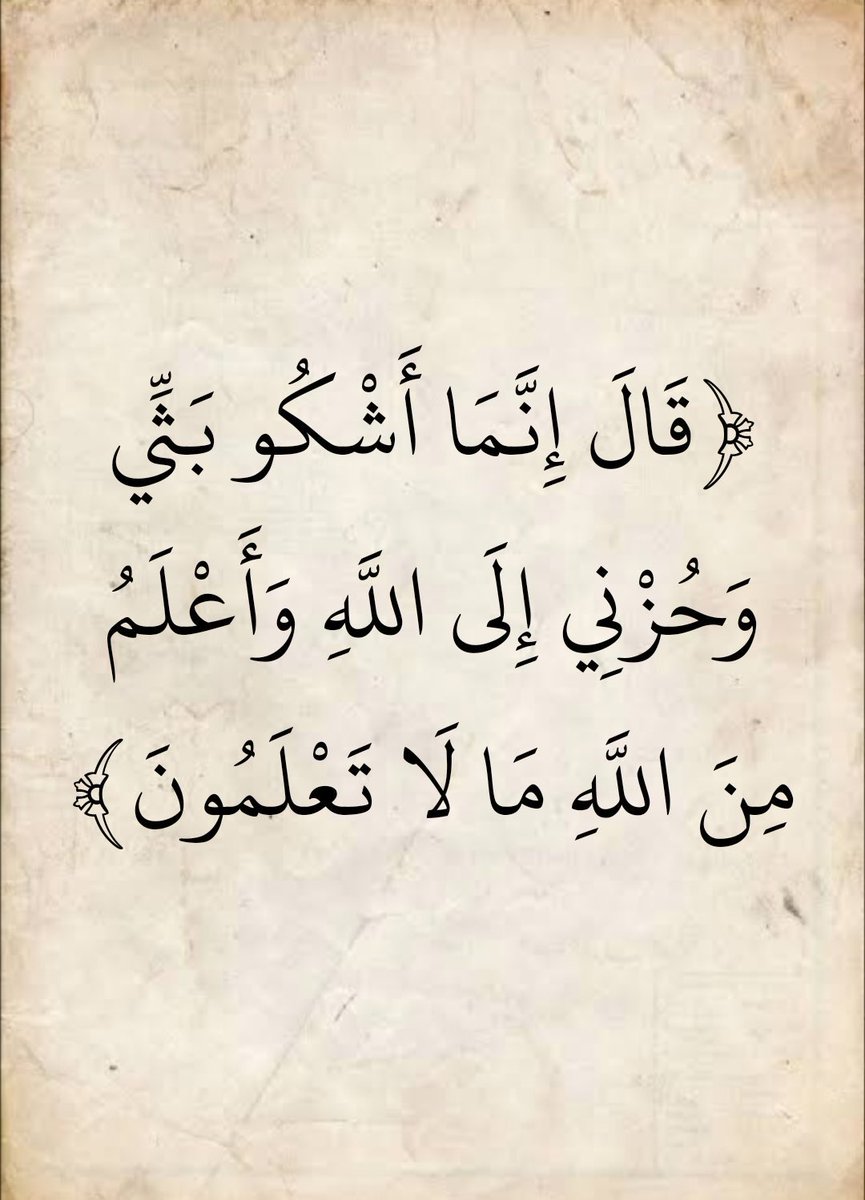 ﴿قَالَ إِنَّمَا أَشْكُو بَثِّي
وَحُزْنِي إِلَى اللَّهِ وَأَعْلَمُ
مِنَ اللَّهِ مَا لَا تَعْلَمُونَ﴾